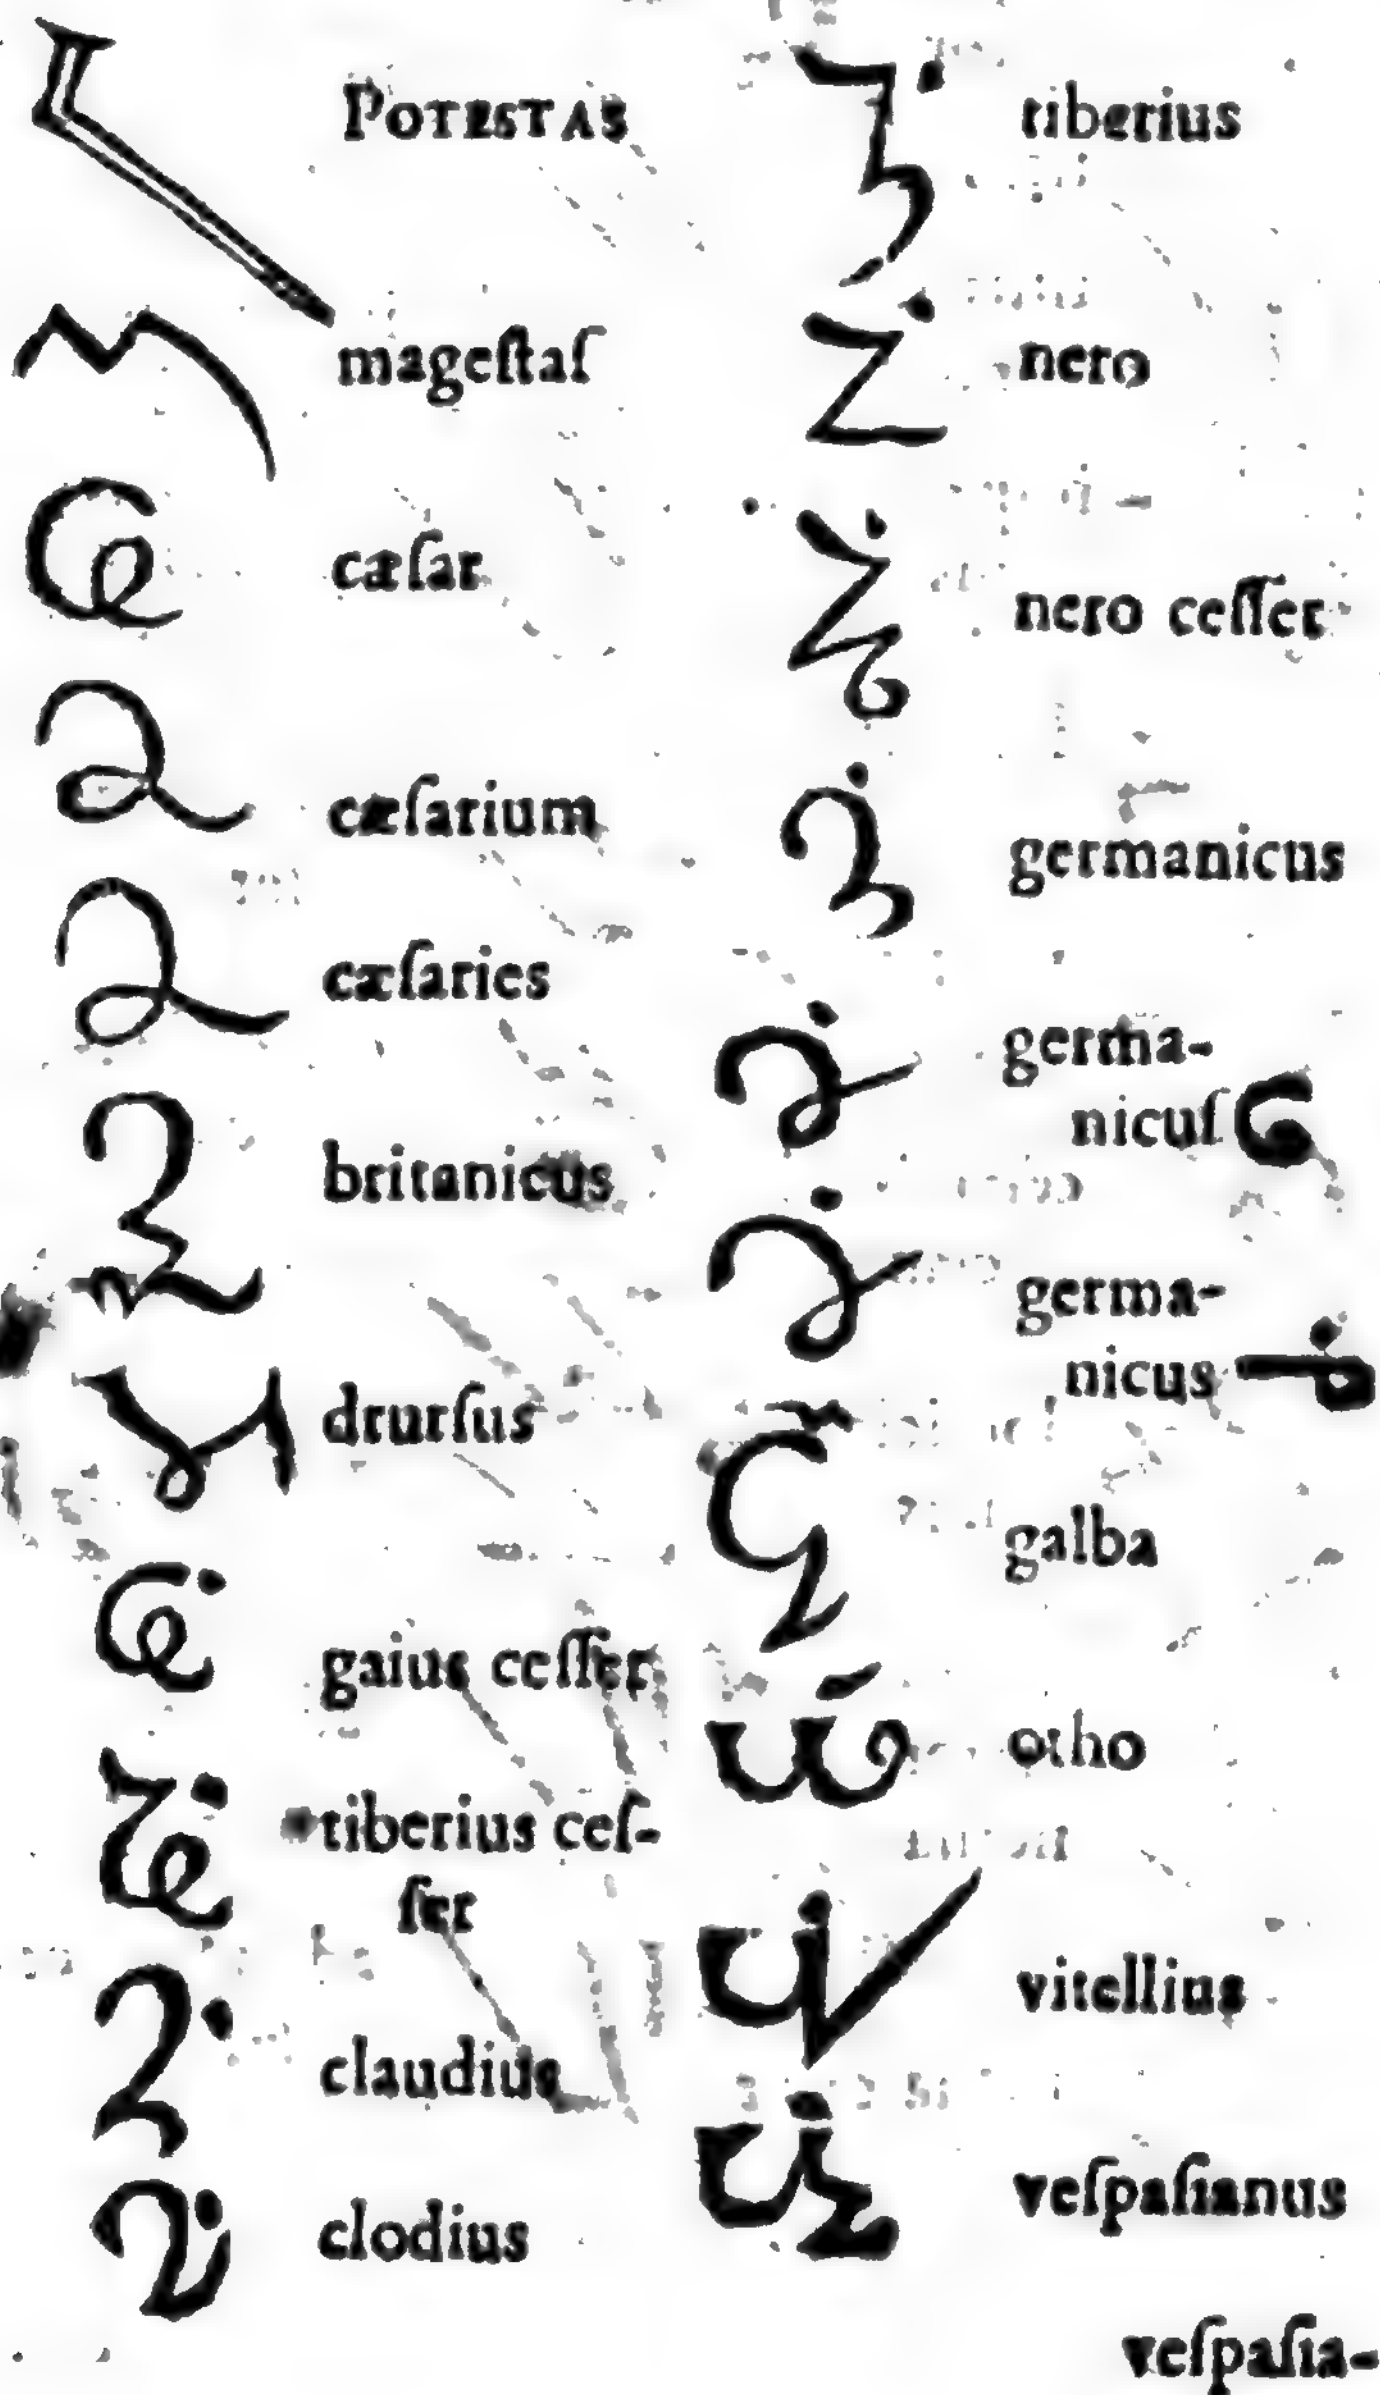 POTESTAS
mageſtaſ
cæſar
cæſarium
cæſaries
britanicus
drurſus
gaius ceſſer
tiberius ceſ-
ſer
claudius
clodius
tiberius
nero
nero ceſſer
germanicus
germa-
nicuſ
germa-
nicus
galba
otho
vitellius
veſpaſianus
veſpaſia-